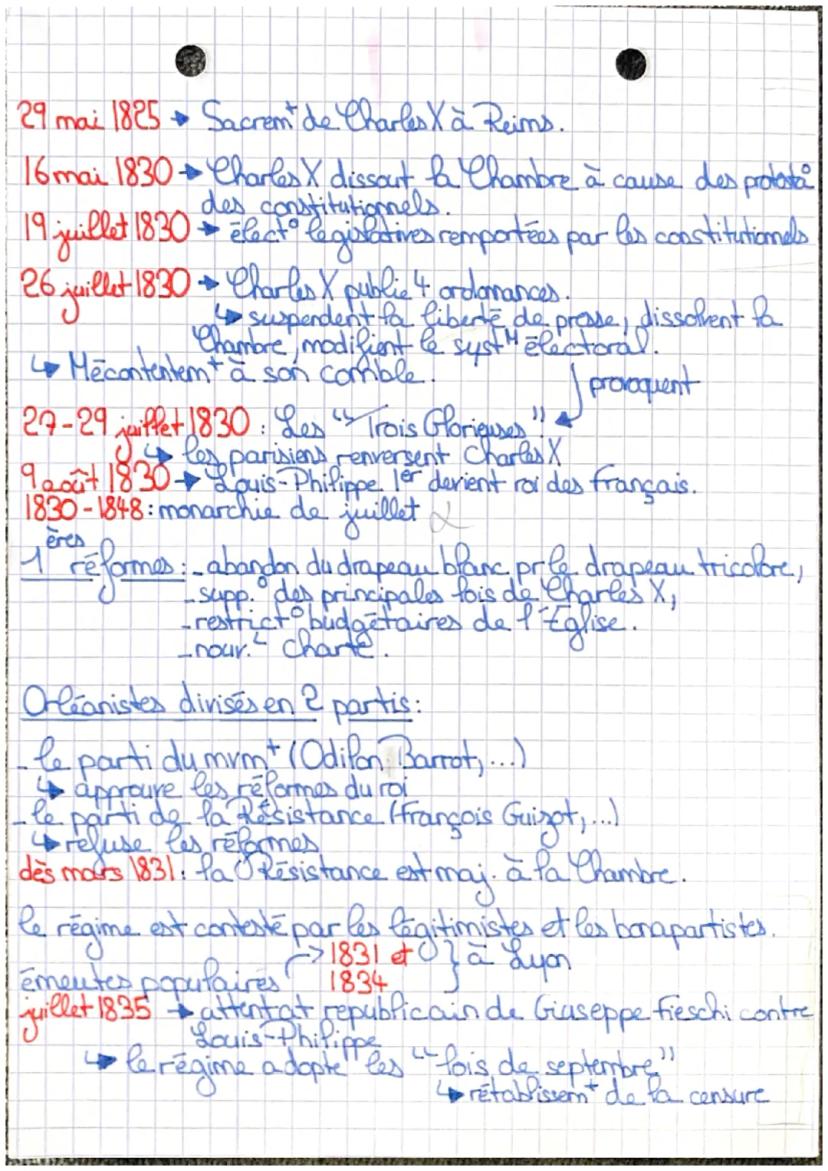 29 mai 1825 → Sacrem^t de Charles X à Reims.
16 mai 1830 → Charles X dissout la Chambre à cause des protesta°
des constitutionnels.
19 juillet 1830 → élect° législatives remportées par les constitutionnels
26 juillet 1830 → Charles X publie 4 ordonnances.
↳ suspendent la liberté de presse, dissolvent la
Chambre, modifient le syst^M électoral.
↳ Mécontentem^t à son comble.
provoquent
27-29 juillet 1830 : Les "Trois Glorieuses"
↳ les parisiens renversent Charles X
9 août 1830 → Louis-Philippe 1er devient roi des français.
1830-1848 : monarchie de juillet
1ères réformes : - abandon du drapeau blanc pr le drapeau tricolore,
- supp.° des principales lois de Charles X,
- restrict° budgétaires de l'Église.
- nouv.^L charte.
Orléanistes divisés en 2 partis :
- le parti du mvm^t (Odilon Barrot, ...)
↳ approuve les réformes du roi
- le parti de la Résistance (François Guizot, ...)
↳ refuse les réformes
dès mars 1831 : la Résistance est maj. à la Chambre.
le régime est contesté par les légitimistes et les bonapartistes.
émeutes populaires → 1831 et 1834 } à Lyon
juillet 1835 → attentat republicain de Giuseppe Fieschi contre
Louis-Philippe
↳ le régime adopte les "lois de septembre"
↳ rétablissem^t de la censure